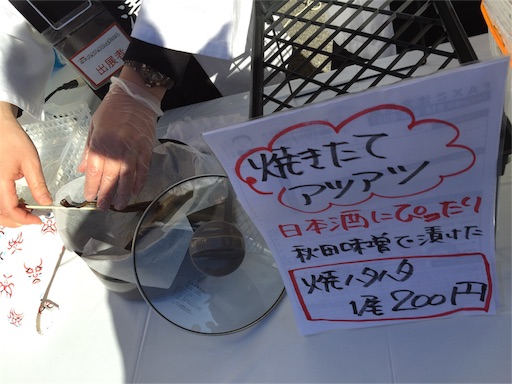 出展者
焼きたて
アツアツ
日本酒にぴったり
秋田味噌で漬けた
焼ハタハタ
1尾200円